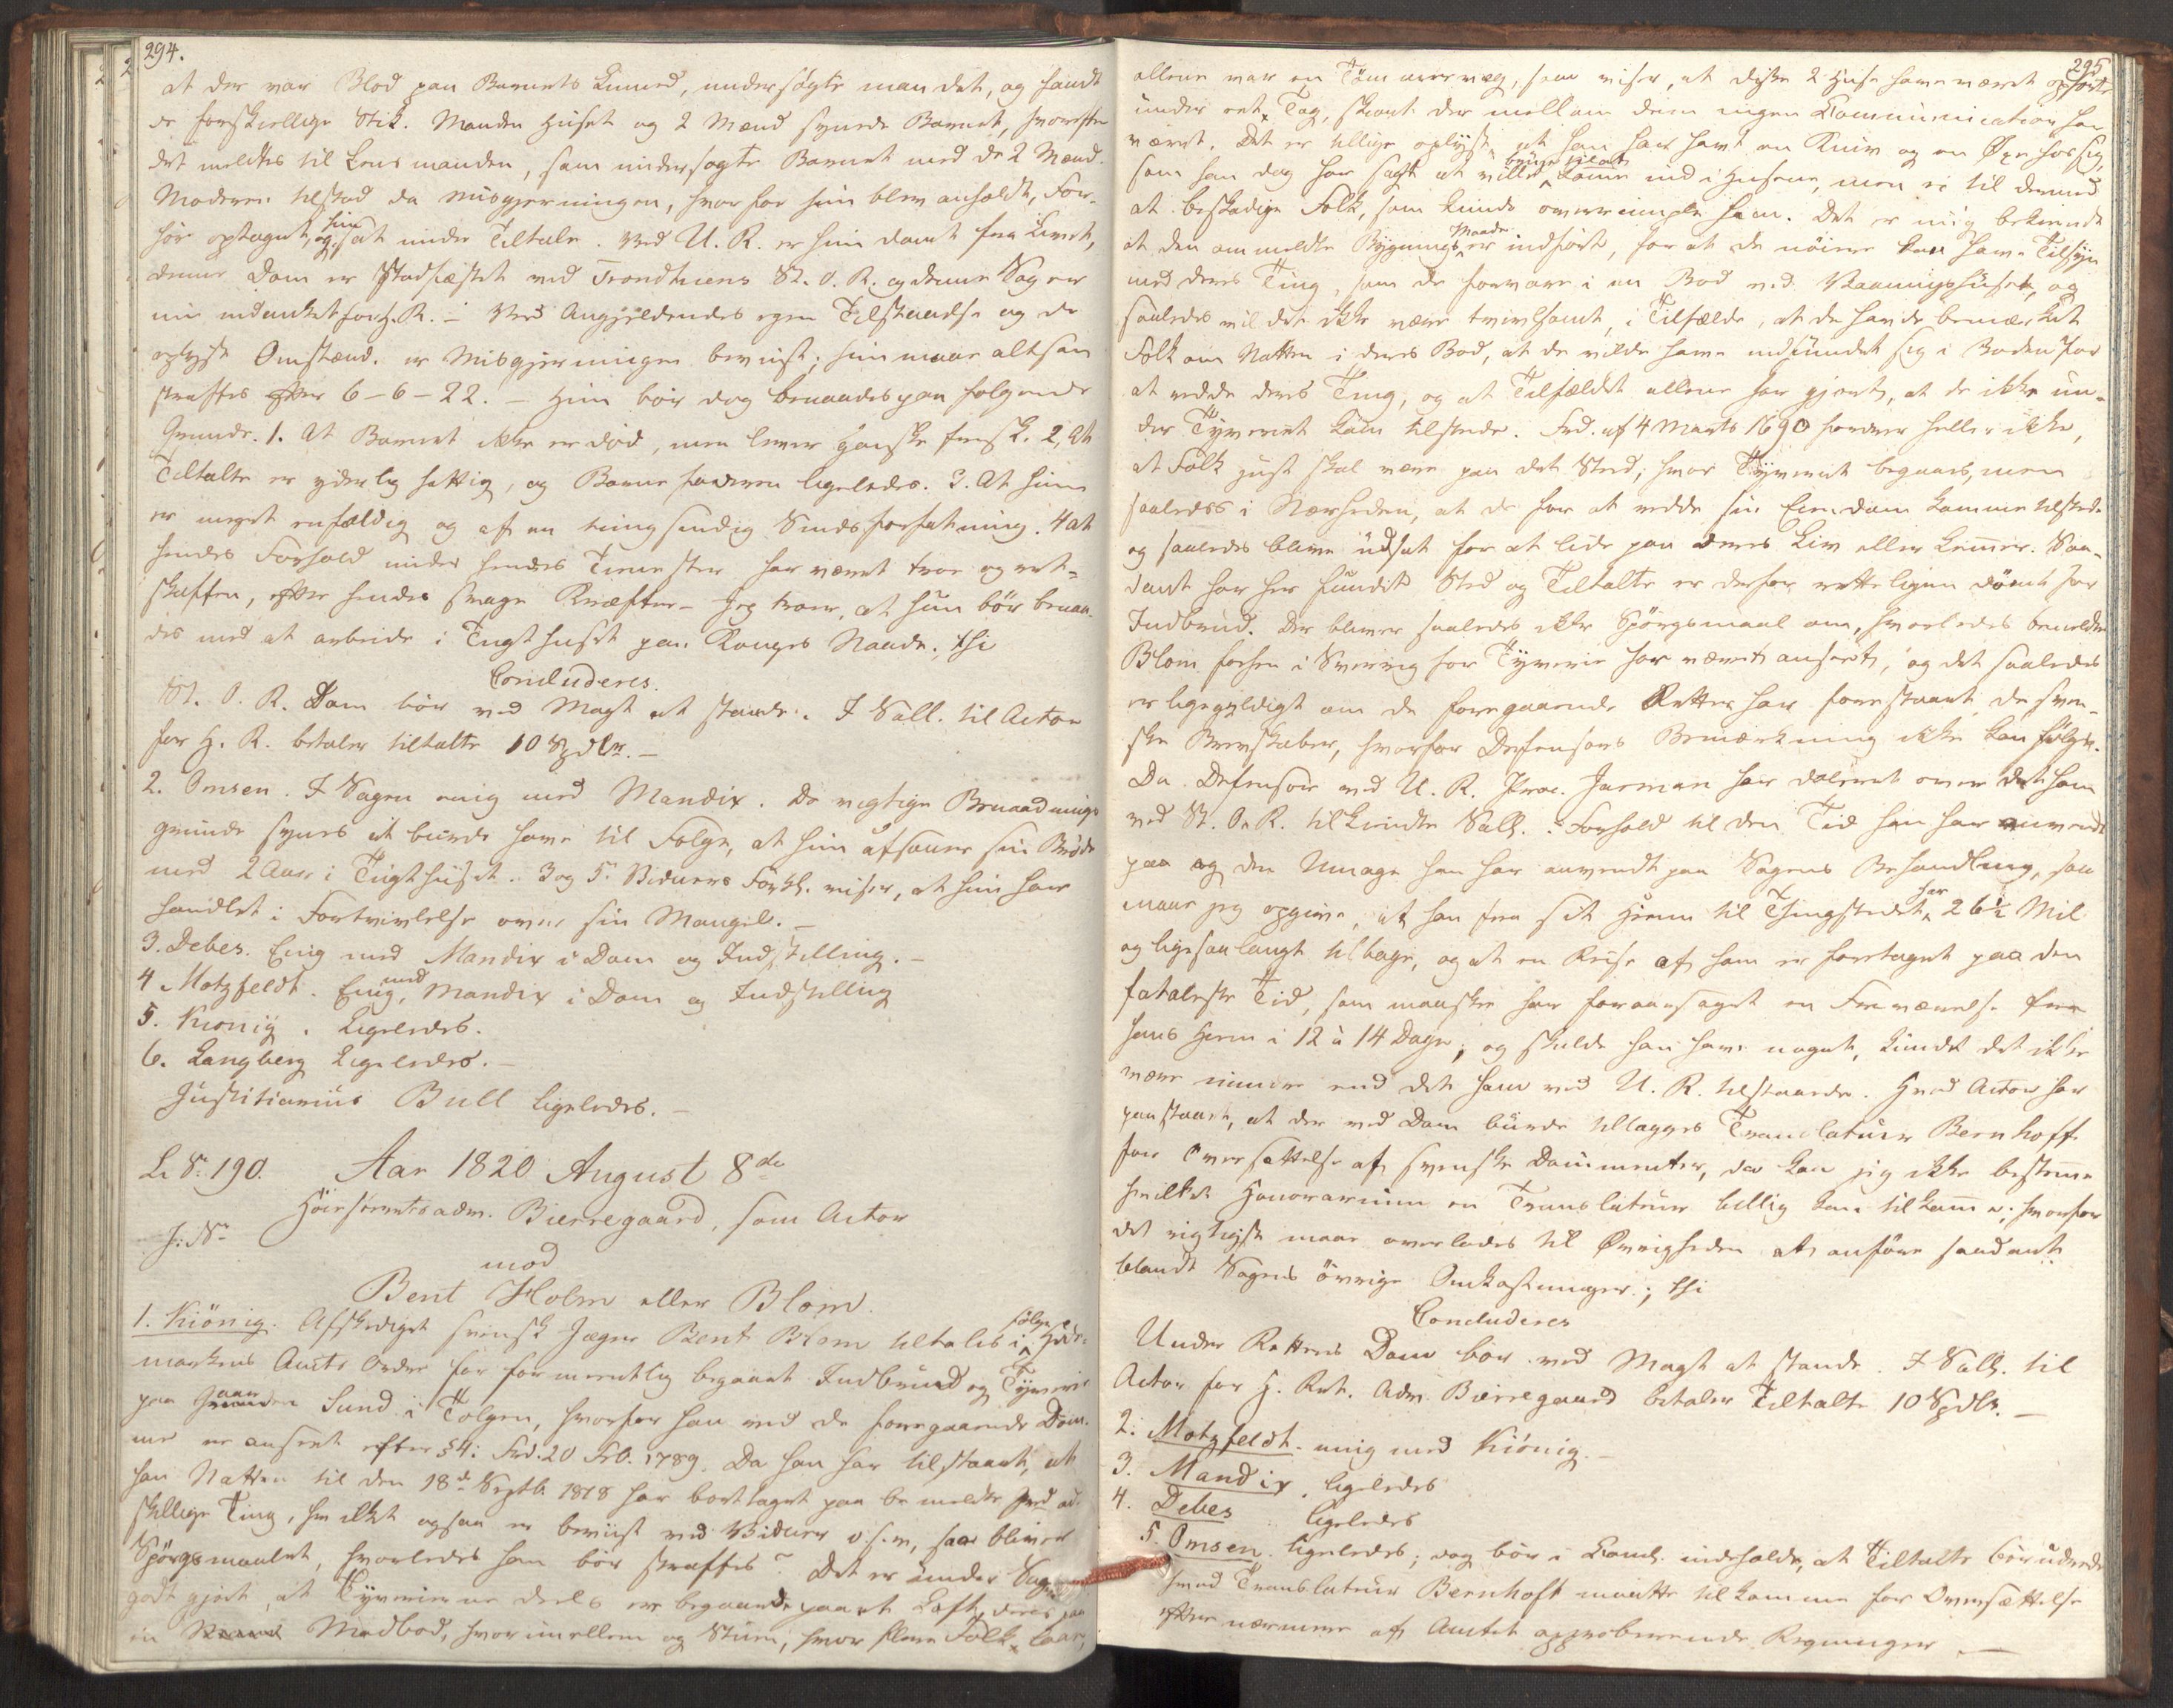 294.
at der var Blod paa Barnets Linned, undersøgte man det, og fandt
de forskiellige Stik. Manden Huset og 2 Mænd synede Barnet, hvorefter
det meldtes til Lensmanden, som undersøgte Barnet med de 2 Mænd.
Moderen tilstod da Misgjerningen, hvorfor hun blev anholdt, For-
hör optaget, og hun sat under Tiltale. Ved U. R. er hun dömt fra Livet,
denne Dom er stadfæstet ved Trondhiems St. O. R. og denne Sag er
nu indanket for H. R. – Ved Angjeldendes egen Tilstaaelse og de
oplyste Omstænd. er Misgjerningen beviist; hun maae altsaa
straffes efter 6-6-22. – Hun bör dog benaades paa fölgende
Grunde. 1. At Barnet ikke er död, men lever ganske frisk. 2, At
Tiltalte er yderlig fattig, og Barnefaderen ligeledes. 3. At hun
er meget enfældig og af en tungsindig Sindsforfatning. 4 at
hendes Forhold under hendes Tienester har været troe og ret-
skaffen, efter hendes svage Kræfter – Jeg troer, at hun bör benaa-
des med at arbeide i Tugthuset paa Konges Naade.; thi
Concluderes.
St. O. R. Dom bör ved Magt at stande. I Sall. til Actor
for H. R. betaler tiltalte 10 Spdlr. –
2. Omsen. I Sagen enig med Mandix. De vigtige Benaadnings
grunde synes at burde have til Fölge, at hun afsoner sin Bröde
med 2 Aar i Tugthuset. 3 og 5. Vidners Forkl. viser, at hun har
handlet i Fortvivlelse over sin Mangel. –
3. Debes. Enig med Mandix i Dom og Indstilling. –
4 Motzfeldt. Enig med Mandix i Dom og Indstilling
5. Kiönig. Ligeledes.
6. Langberg Ligeledes. –
Justitiarius Bull ligeledes. –
L. No. 190. Aar 1820 August 8de
Höiesteretsadv. Bierregaard, som Actor
J: No
mod
Bent Holm eller Blom.
1. Kiönig. Afskediget svensk Jæger Bent Blom tiltales i fölge Hede-
markens Amts Order for formeentlig begaaet Indbrud og Tyverie
paa Gaarden Sund i Tolgen, hvorfor han ved de foregaaende Dom-
me er anseet efter § 4: Frd. 20 Feb. 1789. Da han har tilstaaet, at
han Natten til den 18de Septb. 1818 har borttaget paa bemeldte Sted ad-
skillige Ting, hvilket ogsaa er beviist ved Vidner o.s.v., saa bliver
Spörgsmaalet, hvorledes han bör straffes? Det er under Sagen
godtgjort, at Tyverierne deels ere begaaede paa et Loft, deels paa
en Madbod, hvorimellem og Stuen, hvor flere Folk laae,
295
allene var en Tömmervæg, som viser, at disse 2 Huse have været opförte
under eet Tag, skiönt der mellem dem ingen Communication har
været. Det er tillige oplyst, at han har havt en Kniv og en Öxe hos sig,
som han dog har sagt at ville bruge til at komme ind i Husene, men ei til dermed
at beskadige Folk, som kunde overrumple ham. Det er mig bekiendt
at den ommeldte Bygnings Maade er indfört, for at de nöiere kan have Tilsyn
med deres Ting, som de forvare i en Bod ved Vaaningshuset, og
saaledes vil det ikke være tvivlsomt, i Tilfælde, at de havde bemærket
Folk om Natten i deres Bod, at de vilde have indfundet sig i Boden for
at redde deres Ting, og at Tilfældet allene har gjort, at de ikke un-
der Tyveriet kom tilstede. Frd. af 4 Marts 1690 fordrer heller ikke,
at Folk just skal være paa det Sted, hvor Tyveriet begaaes, men
saaledes i Nærheden, at de for at redde sin Eiendom komme tilstede
og saaledes blive udsat for at lide paa deres Liv eller Lemmer. Saa-
dant har her fundet Sted og Tiltalte er derfor rettelig en dömt for
Indbrud. Der bliver saaledes ikke Spörgsmaal om, hvorledes bemeldte
Blom forhen i Sverrig for Tyverie har været anseet, og det saaledes
er ligegyldigt om de foregaaende Retter har forestaaet de sven-
ske Brevskaber, hvorfor Defensors Bemærkning ikke kan fölges.
Da Defensor ved U. R. Proc. Jarman har doleret over det ham
ved St. O. R. tilkiendte Sall. i Forhold til den Tid han har anvendt
paa og den Umage han har anvendt paa Sagens Behandling, saa
maae jeg opgive, at han fra sit Hiem til Thingstedet har 26½ Mil
og ligesaa langt tilbage, og at en Reise af ham er foretaget paa den
fataleste Tid, som maaskee har foraarsaget en Fraværelse fra
hans Hiem i 12 à 14 Dage; og skulde han have noget, kunde det ikke
være mindre end det ham ved U. R. tilstaaede. Hvad Actor har
paastaaet, at der ved Dom burde tillægges Translateur Bernhoft
for Oversættelse af svenske Documenter, da kan jeg ikke bestemme
hvilket Honorarium en Translateur billig kan tilkomme; hvorfor
det rigtigste maae overlades til Övrigheden at anföre saadant
blandt Sagens övrige Omkostninger.; thi
Concluderes
Under Rettens Dom bör ved Magt at stande. I Sall. til
Actor for H. Ret. Adv. Bierregaard betaler Tiltalte 10 Spdlr. –
2. Motzfeldt. enig med Kiönig. –
3. Mandix, ligeledes
4. Debes ligeledes
5. Omsen. ligeledes; dog bör i Concl. indeholde, at Tiltalte bör udrede
hvad Translateur Bernhoft maatte tilkomme for Oversættelse
efter nærmere af Amtet approberende Regninger. –